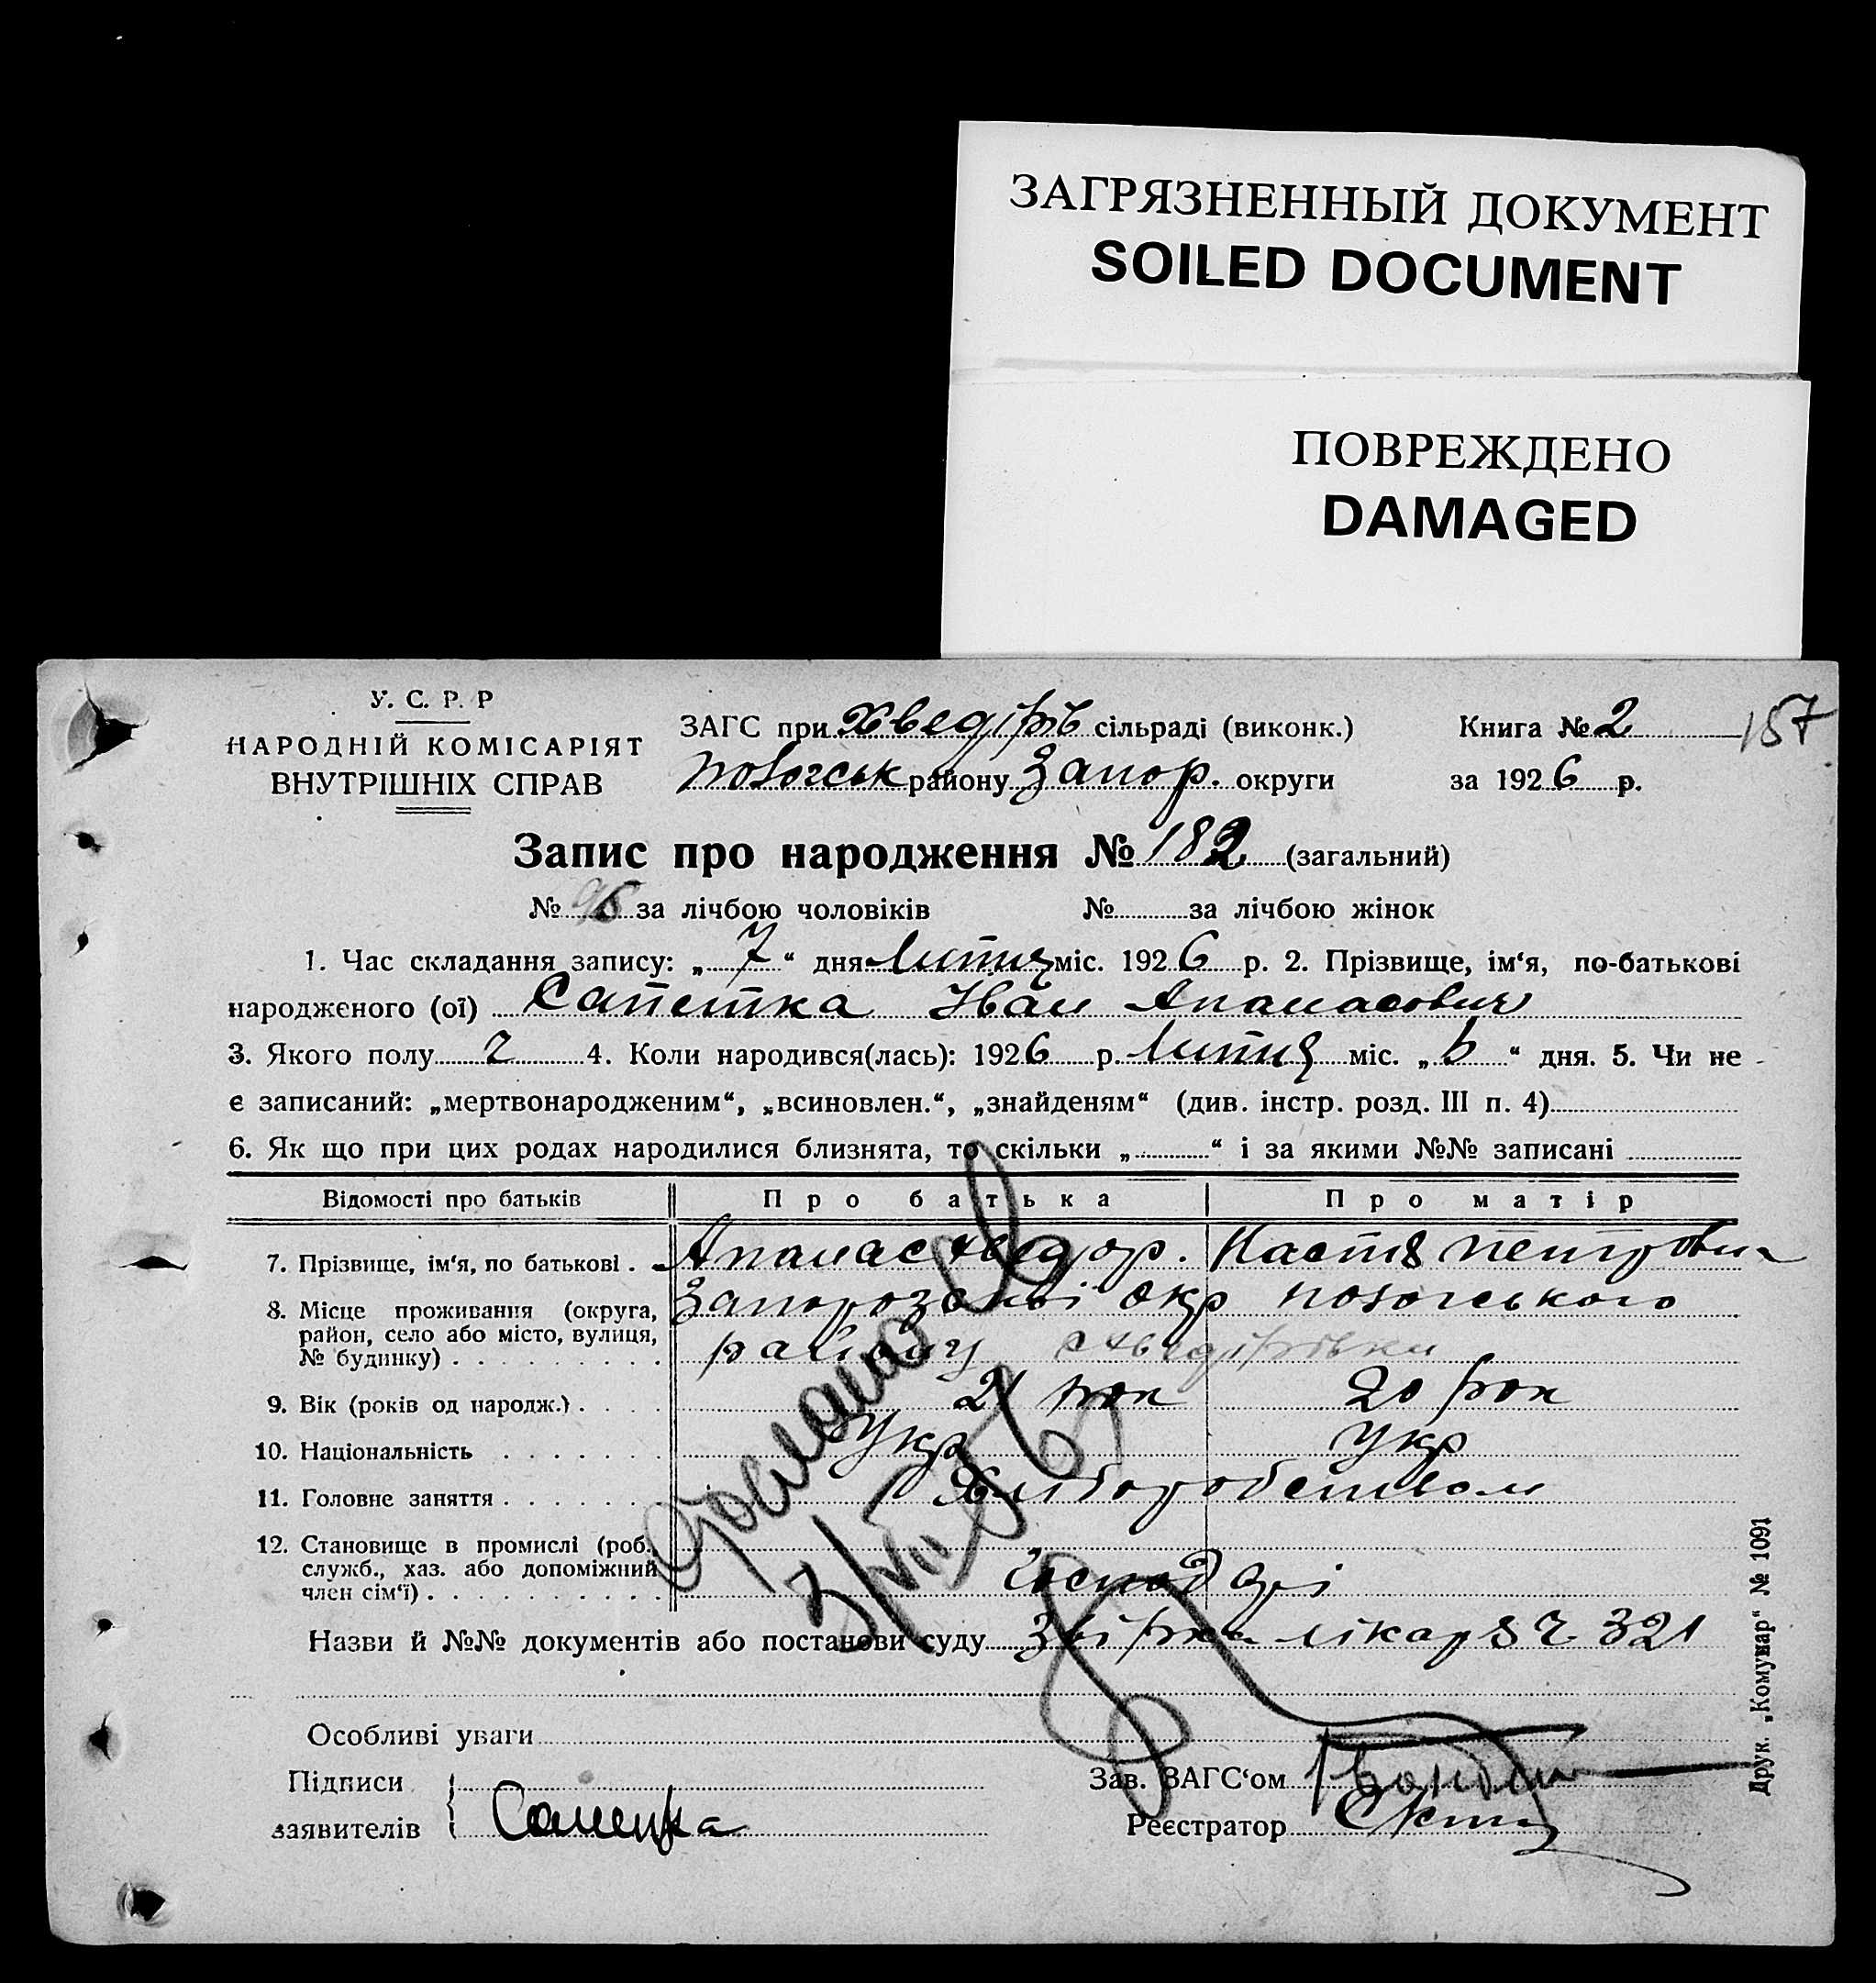 ЗАГРЯЗНЕННЫЙ ДОКУМЕНТ
SOILED DOCUMENT
ПОВРЕЖДЕНО
DAMAGED
У. С. Р. Р
НАРОДНІЙ КОМІСАРІЯТ
ВНУТРІШНІХ СПРАВ
ЗАГС при Хведірів сільраді (виконк.)
Пологськ району Запор. округи
Книга № 2
157
за 1926 р.
Запис про народження № 182 (загальний)
№ 96 за лічбою чоловіків № за лічбою жінок
1. Час складання запису: „7“ дня Липня міс. 1926 р. 2. Прізвище, ім‘я, по-батькові
народженого (ої) Іван Апанасович
3. Якого полу ч 4. Коли народився(лась): 1926 р. Липня міс. „ “ дня. 5. Чи не
є записаний: „мертвонародженим“, „всиновлен.“, „знайденям“ (див. інстр. розд. III п. 4)
6. Як що при цих родах народилися близнята, то скільки „ “ і за якими №№ записані
Відомості про батьків Про батька Про матір
7. Прізвище, ім‘я, по батькові . Апанас Хведор. Настя Петровна
8. Місце проживання (округа, район, село або місто, вулиця, № будинку) . Запорозької окр Пологського
району с Хведірівки
9. Вік (років од народж.) . 21 рок 20 рок
10. Національність . Укр Укр
11. Головне заняття . Хліборобством
12. Становище в промислі (роб., служб., хаз. або допоміжний член сім‘ї) . Господарі
Назви й №№ документів або постанови суду лікаря ч 321
Особливі уваги
Підписи
заявителів
Зав. ЗАГС‘ом
Реєстратор
Друк. „Комунар“ № 1091